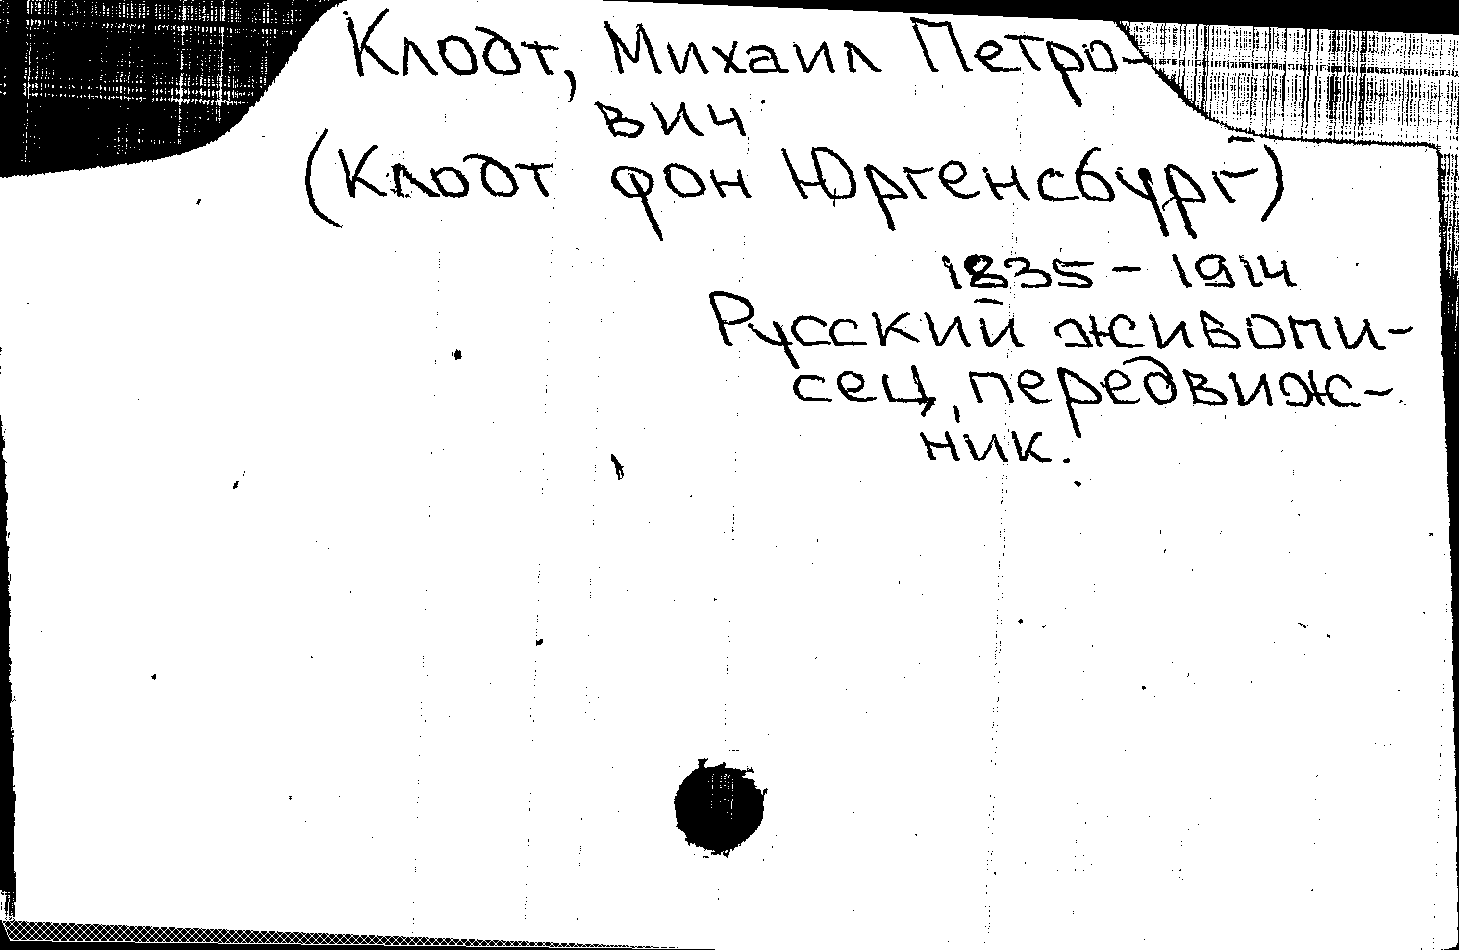 Клодт, Михаил Петро-
вич
(Клодт фон Юргенсбург)
1835 - 1914
Русский живопи-
сец, передвиж-
ник.